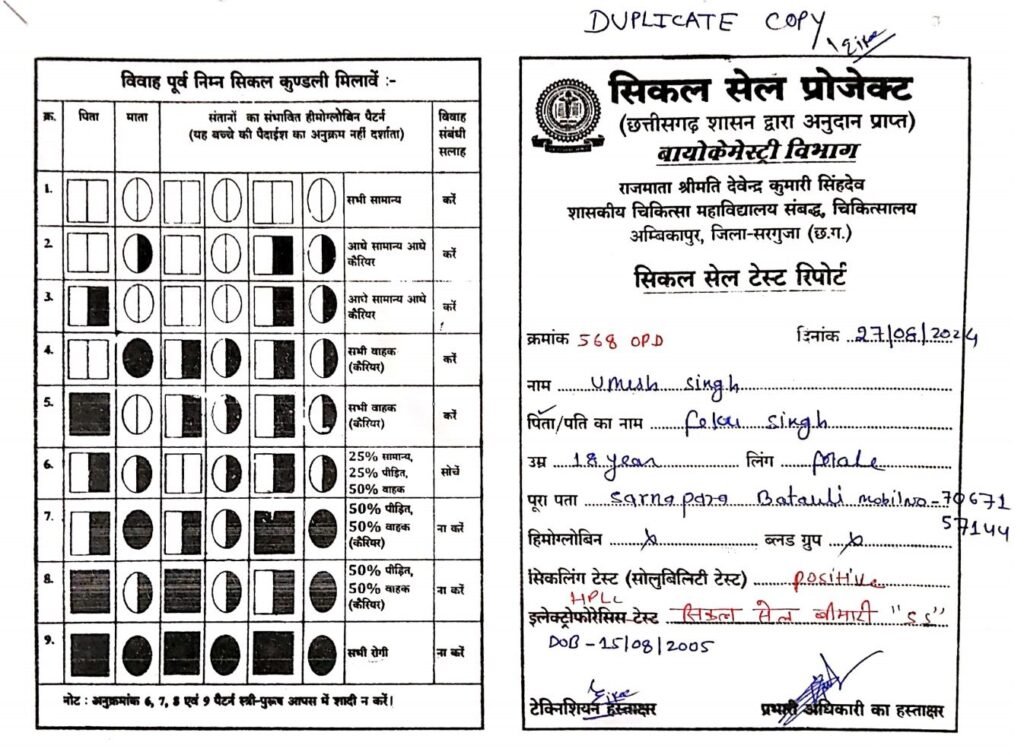 DUPLICATE COPY
विवाह पूर्व निम्न सिकल कुण्डली मिलावें :-
क्र. पिता माता संतानों का संभावित हीमोग्लोबिन पैटर्न (यह बच्चे की पैदाईश का अनुक्रम नहीं दर्शाता) विवाह संबंधी सलाह
1. सभी सामान्य करें
2. आधे सामान्य आधे कैरियर करें
3. आधे सामान्य आधे कैरियर करें
4. सभी वाहक (कैरियर) करें
5. सभी वाहक (कैरियर) करें
6. 25% सामान्य, 25% पीड़ित, 50% वाहक सोचें
7. 50% पीड़ित, 50% वाहक (कैरियर) ना करें
8. 50% पीड़ित, 50% वाहक (कैरियर) ना करें
9. सभी रोगी ना करें
नोट : अनुक्रमांक 6, 7, 8 एवं 9 पैटर्न स्त्री-पुरूष आपस में शादी न करें।
सिकल सेल प्रोजेक्ट
(छत्तीसगढ़ शासन द्वारा अनुदान प्राप्त)
बायोकेमेस्ट्री विभाग
राजमाता श्रीमति देवेन्द्र कुमारी सिंहदेव
शासकीय चिकित्सा महाविद्यालय संबद्ध, चिकित्सालय
अम्बिकापुर, जिला-सरगुजा (छ.ग.)
सिकल सेल टेस्ट रिपोर्ट
क्रमांक 568 OPD दिनांक 27/08/2024
नाम Umesh Singh
पिता/पति का नाम Singh
उम्र 18 year लिंग Male
पूरा पता Sarnapara Batauli mobil no - 70671
57144
हिमोग्लोबिन x ब्लड ग्रुप x
सिकलिंग टेस्ट (सोलुबिलिटी टेस्ट) positive
HPLC
इलेक्ट्रोफोरेसिस टेस्ट सिकल सेल बीमारी "SS"
DOB - 15/08/2005
टेक्निशियन हस्ताक्षर प्रभारी अधिकारी का हस्ताक्षर